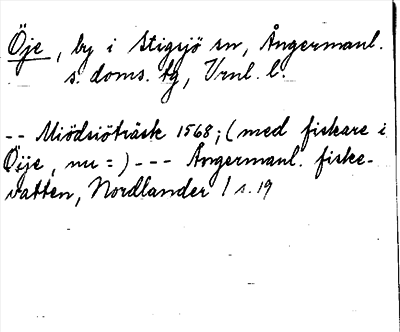 Öje, by i Stigsjö sn, Ångermanl.
s. doms. tg, Vrnl. l.
-- Miödsiöträsk 1568; (med fiskare i
Öije, nu =) --- Ångermanl. fiske-
vatten, Nordlander / s. 19